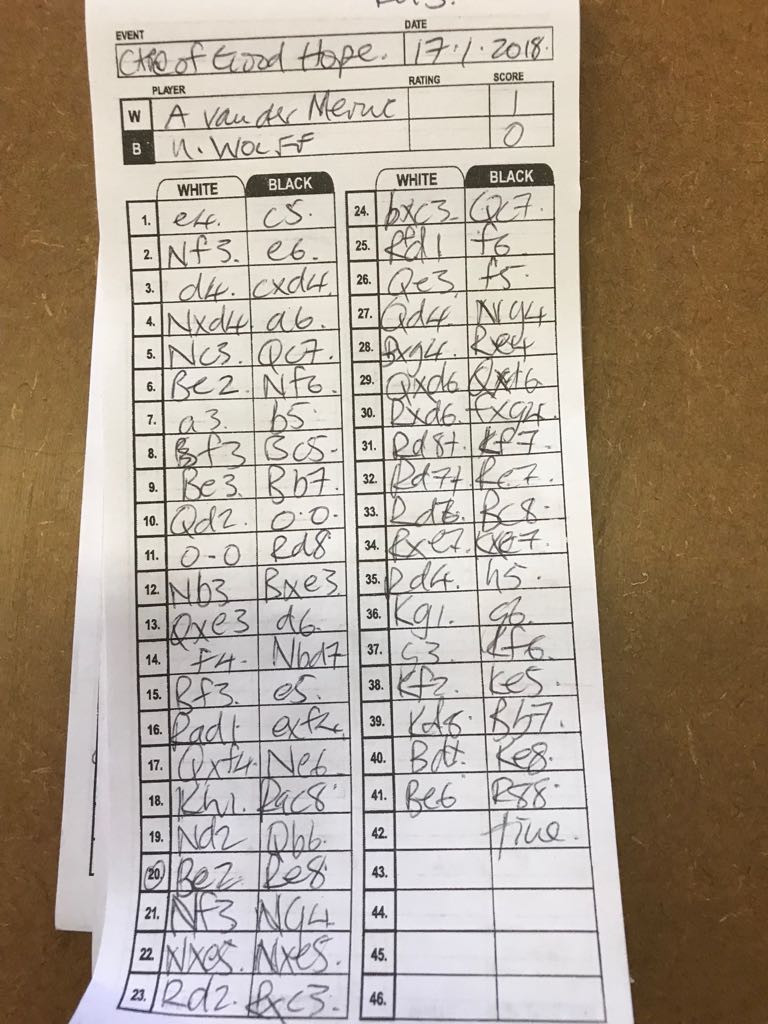 EVENT DATE
of Good Hope. 17.1.2018.
PLAYER RATING SCORE
W A van der Merwe 1
B N. WOLFF 0
WHITE BLACK
1. e4. c5.
2. Nf3. e6.
3. d4. cxd4.
4. Nxd4. a6.
5. Nc3. Qc7.
6. Be2. Nf6.
7. a3. b5.
8. Bf3 Bc5.
9. Be3. Bb7.
10. Qd2. 0-0.
11. 0-0 Rd8
12. Nb3 Bxe3.
13. Qxe3 d6.
14. f4. Nbd7
15. Bf3. e5.
16. Rad1 exf4.
17. Qxf4. Ne6
18. Kh1. Rac8
19. Nd2 Qb6
20. Be2 Re8
21. Nf3 Ng4
22. Nxe5. Nxe5.
23. Rd2. Rxc3.
WHITE BLACK
24. bxc3. Qc7.
25. Rfd1 f6
26. Qe3. f5.
27. Qd4. Ng4
28. Bxg4. Rxe4
29. Qxd6 Qxd6
30. Rxd6. fxg4.
31. Rd8+ Kf7.
32. Rd7+ Re7.
33. Bc8.
34. Rxe7. Kxe7.
35. Rd4. h5.
36. Kg1. g6.
37. Kf6.
38. Kf2. Ke5.
39. Bb7.
40. Ke8.
41. Be6
42. time.
43.
44.
45.
46.